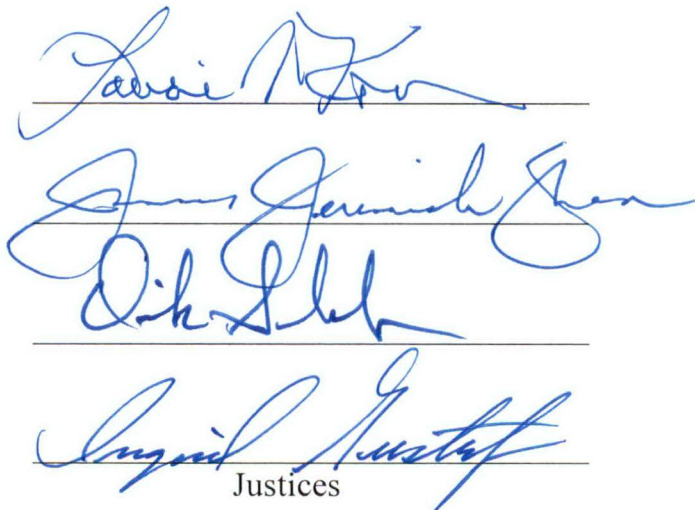 Laurie McKinnon
James Jeremiah Shea
Dirk Sandefur
Ingrid Gustafson
Justices